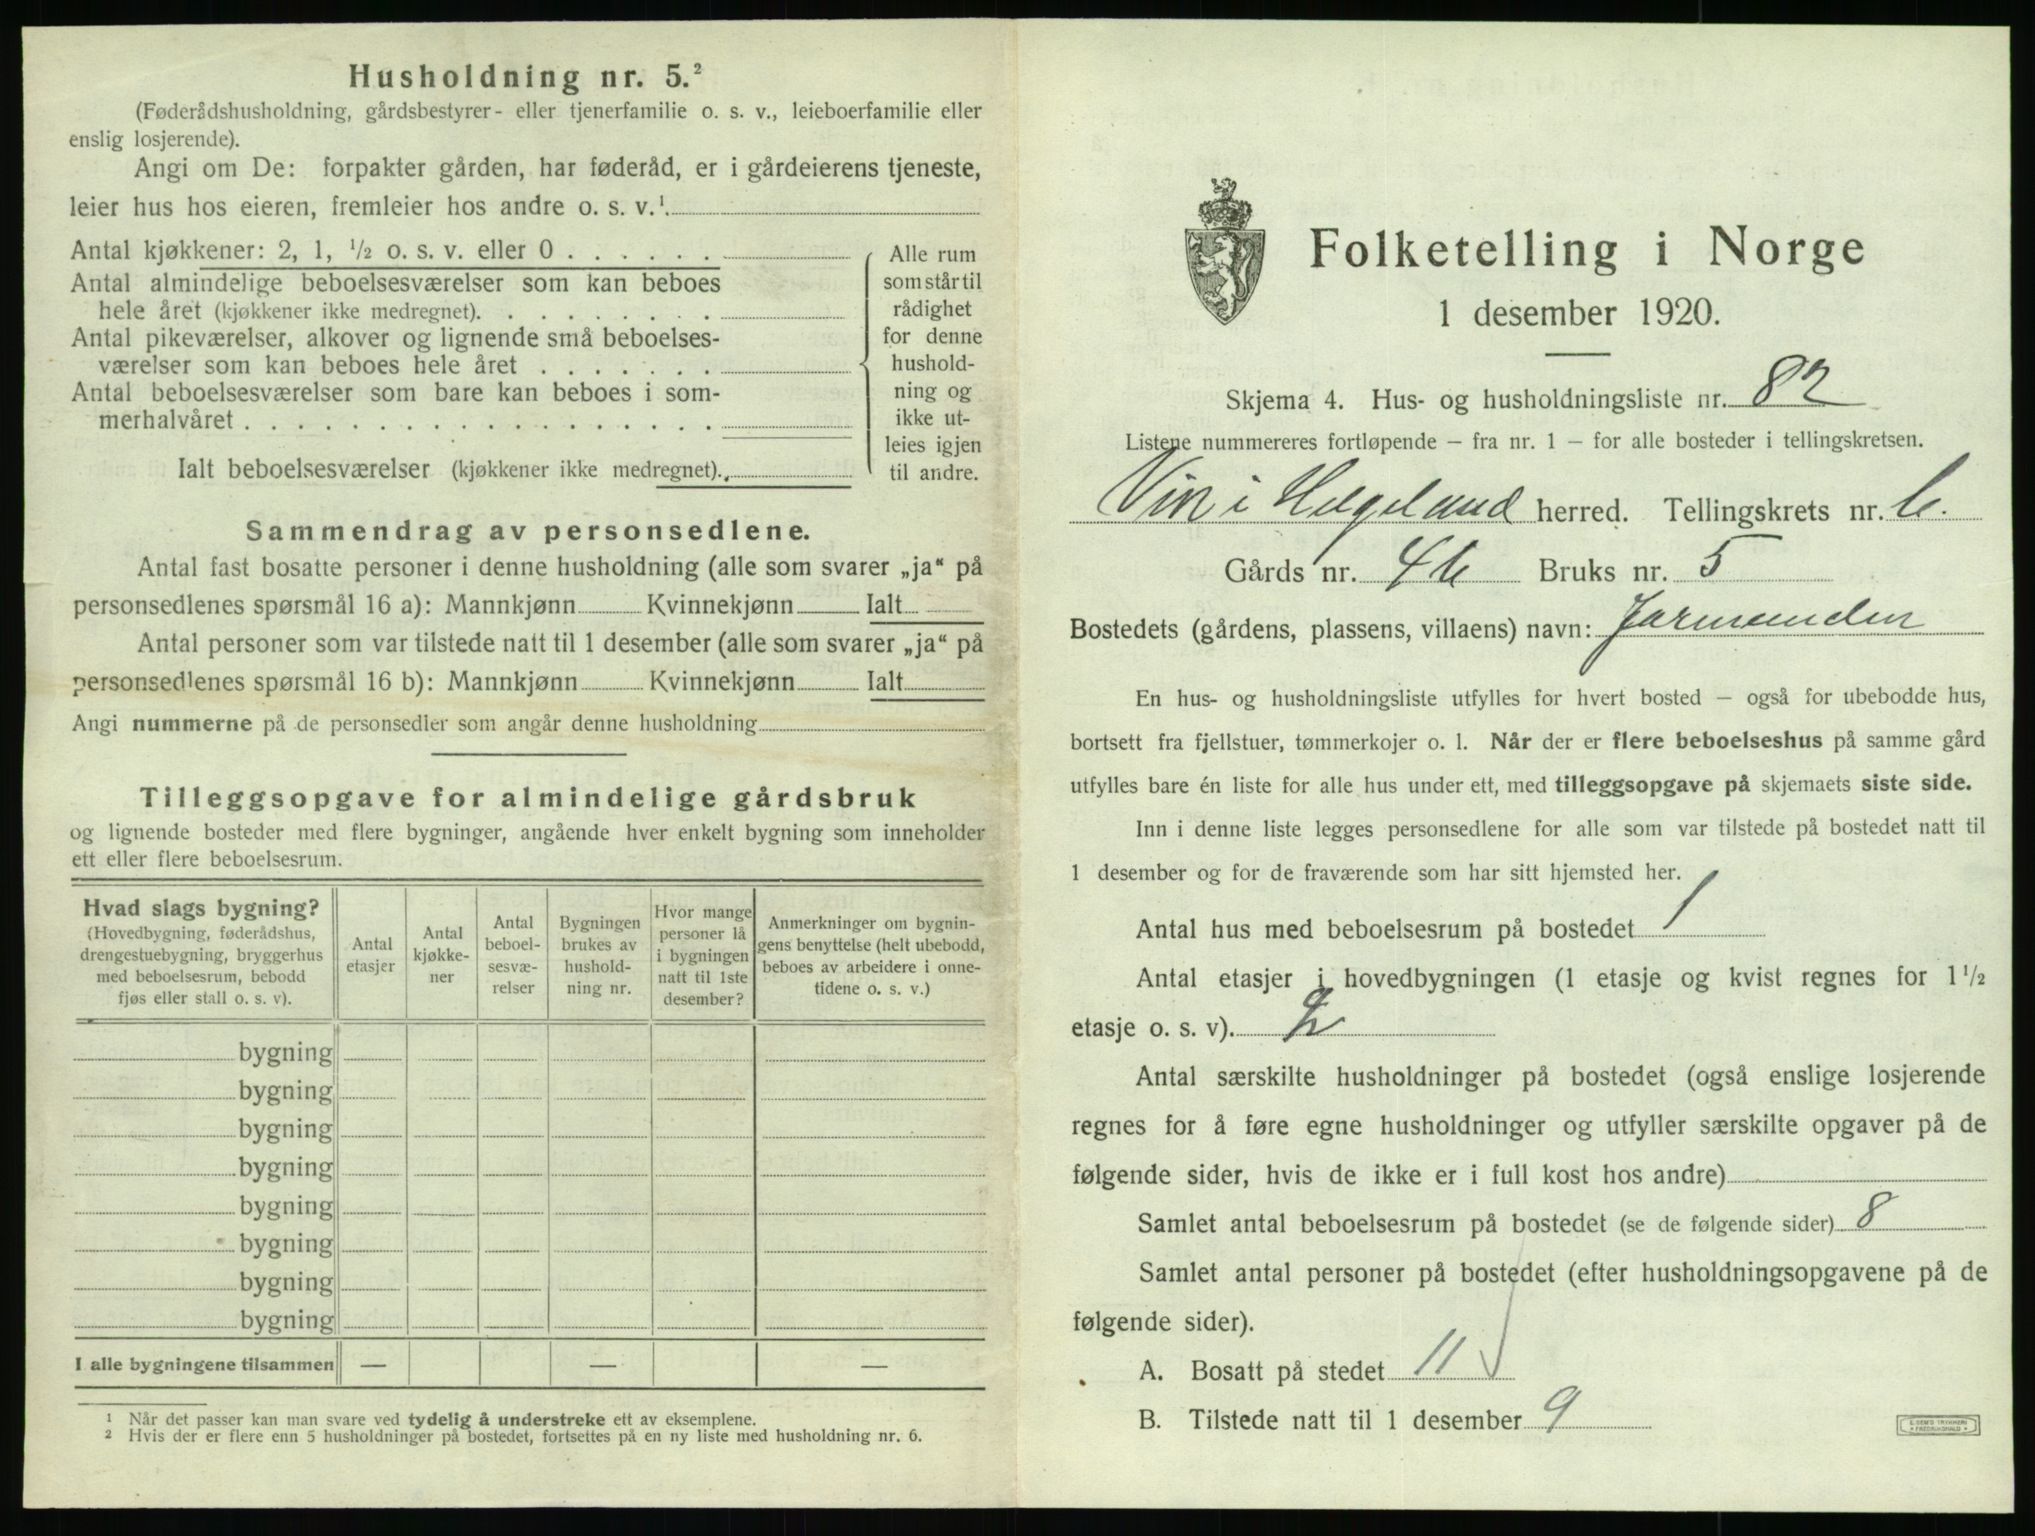 Husholdning nr. 5.²
(Føderådshusholdning, gårdsbestyrer- eller tjenerfamilie o. s. v., leieboerfamilie eller
enslig losjerende).
Angi om De: forpakter gården, har føderåd, er i gårdeierens tjeneste,
leier hus hos eieren, fremleier hos andre o. s. v.¹.
Antal kjøkkener: 2, 1, ½ o. s. v. eller 0 . . . . . .
Antal almindelige beboelsesværelser som kan beboes
hele året (kjøkkener ikke medregnet). . . . . . . . .
Antal pikeværelser, alkover og lignende små beboelses-
værelser som kan beboes hele året . . . . . . .
Antal beboelsesværelser som bare kan beboes i som-
merhalvåret . . . . . . . . . . . . . . . . . .
Ialt beboelsesværelser (kjøkkener ikke medregnet).
Alle rum
som står til
rådighet
for denne
hushold-
ning og
ikke ut-
leies igjen
til andre.
Sammendrag av personsedlene.
Antal fast bosatte personer i denne husholdning (alle som svarer „ja“ på
personsedlenes spørsmål 16 a): Mannkjønn Kvinnekjønn Ialt
Antal personer som var tilstede natt til 1 desember (alle som svarer „ja“ på
personsedlenes spørsmål 16 b): Mannkjønn Kvinnekjønn Ialt
Angi nummerne på de personsedler som angår denne husholdning
Tilleggsopgave for almindelige gårdsbruk
og lignende bosteder med flere bygninger, angående hver enkelt bygning som inneholder
ett eller flere beboelsesrum.
Hvad slags bygning?
(Hovedbygning, føderådshus,
drengestuebygning, bryggerhus
med beboelsesrum, bebodd
fjøs eller stall o. s. v).
Antal
etasjer
Antal
kjøkke-
ner
Antal
beboel-
sesvæ-
relser
Bygningen
brukes av
hushold-
ning nr.
Hvor mange
personer lå
i bygningen
natt til 1ste
desember?
Anmerkninger om bygnin-
gens benyttelse (helt ubebodd,
beboes av arbeidere i onne-
tidene o. s. v.)
bygning
bygning
bygning
bygning
bygning
bygning
bygning
bygning
I alle bygningene tilsammen — — —
1 Når det passer kan man svare ved tydelig å understreke ett av eksemplene.
2 Hvis der er flere enn 5 husholdninger på bostedet, fortsettes på en ny liste med husholdning nr. 6.
Folketelling i Norge
1 desember 1920.
Skjema 4. Hus- og husholdningsliste nr. 82
Listene nummereres fortløpende – fra nr. 1 – for alle bosteder i tellingskretsen.
Vik i Helgeland herred. Tellingskrets nr. 6.
Gårds nr. 46 Bruks nr. 5
Bostedets (gårdens, plassens, villaens) navn:
En hus- og husholdningsliste utfylles for hvert bosted – også for ubebodde hus,
bortsett fra fjellstuer, tømmerkojer o. l. Når der er flere beboelseshus på samme gård
utfylles bare én liste for alle hus under ett, med tilleggsopgave på skjemaets siste side.
Inn i denne liste legges personsedlene for alle som var tilstede på bostedet natt til
1 desember og for de fraværende som har sitt hjemsted her.
Antal hus med beboelsesrum på bostedet 1
Antal etasjer i hovedbygningen (1 etasje og kvist regnes for 1½
etasje o. s. v). 2
Antal særskilte husholdninger på bostedet (også enslige losjerende
regnes for å føre egne husholdninger og utfyller særskilte opgaver på de
følgende sider, hvis de ikke er i full kost hos andre)
Samlet antal beboelsesrum på bostedet (se de følgende sider) 8
Samlet antal personer på bostedet (efter husholdningsopgavene på de
følgende sider).
A. Bosatt på stedet 11
B. Tilstede natt til 1 desember 9